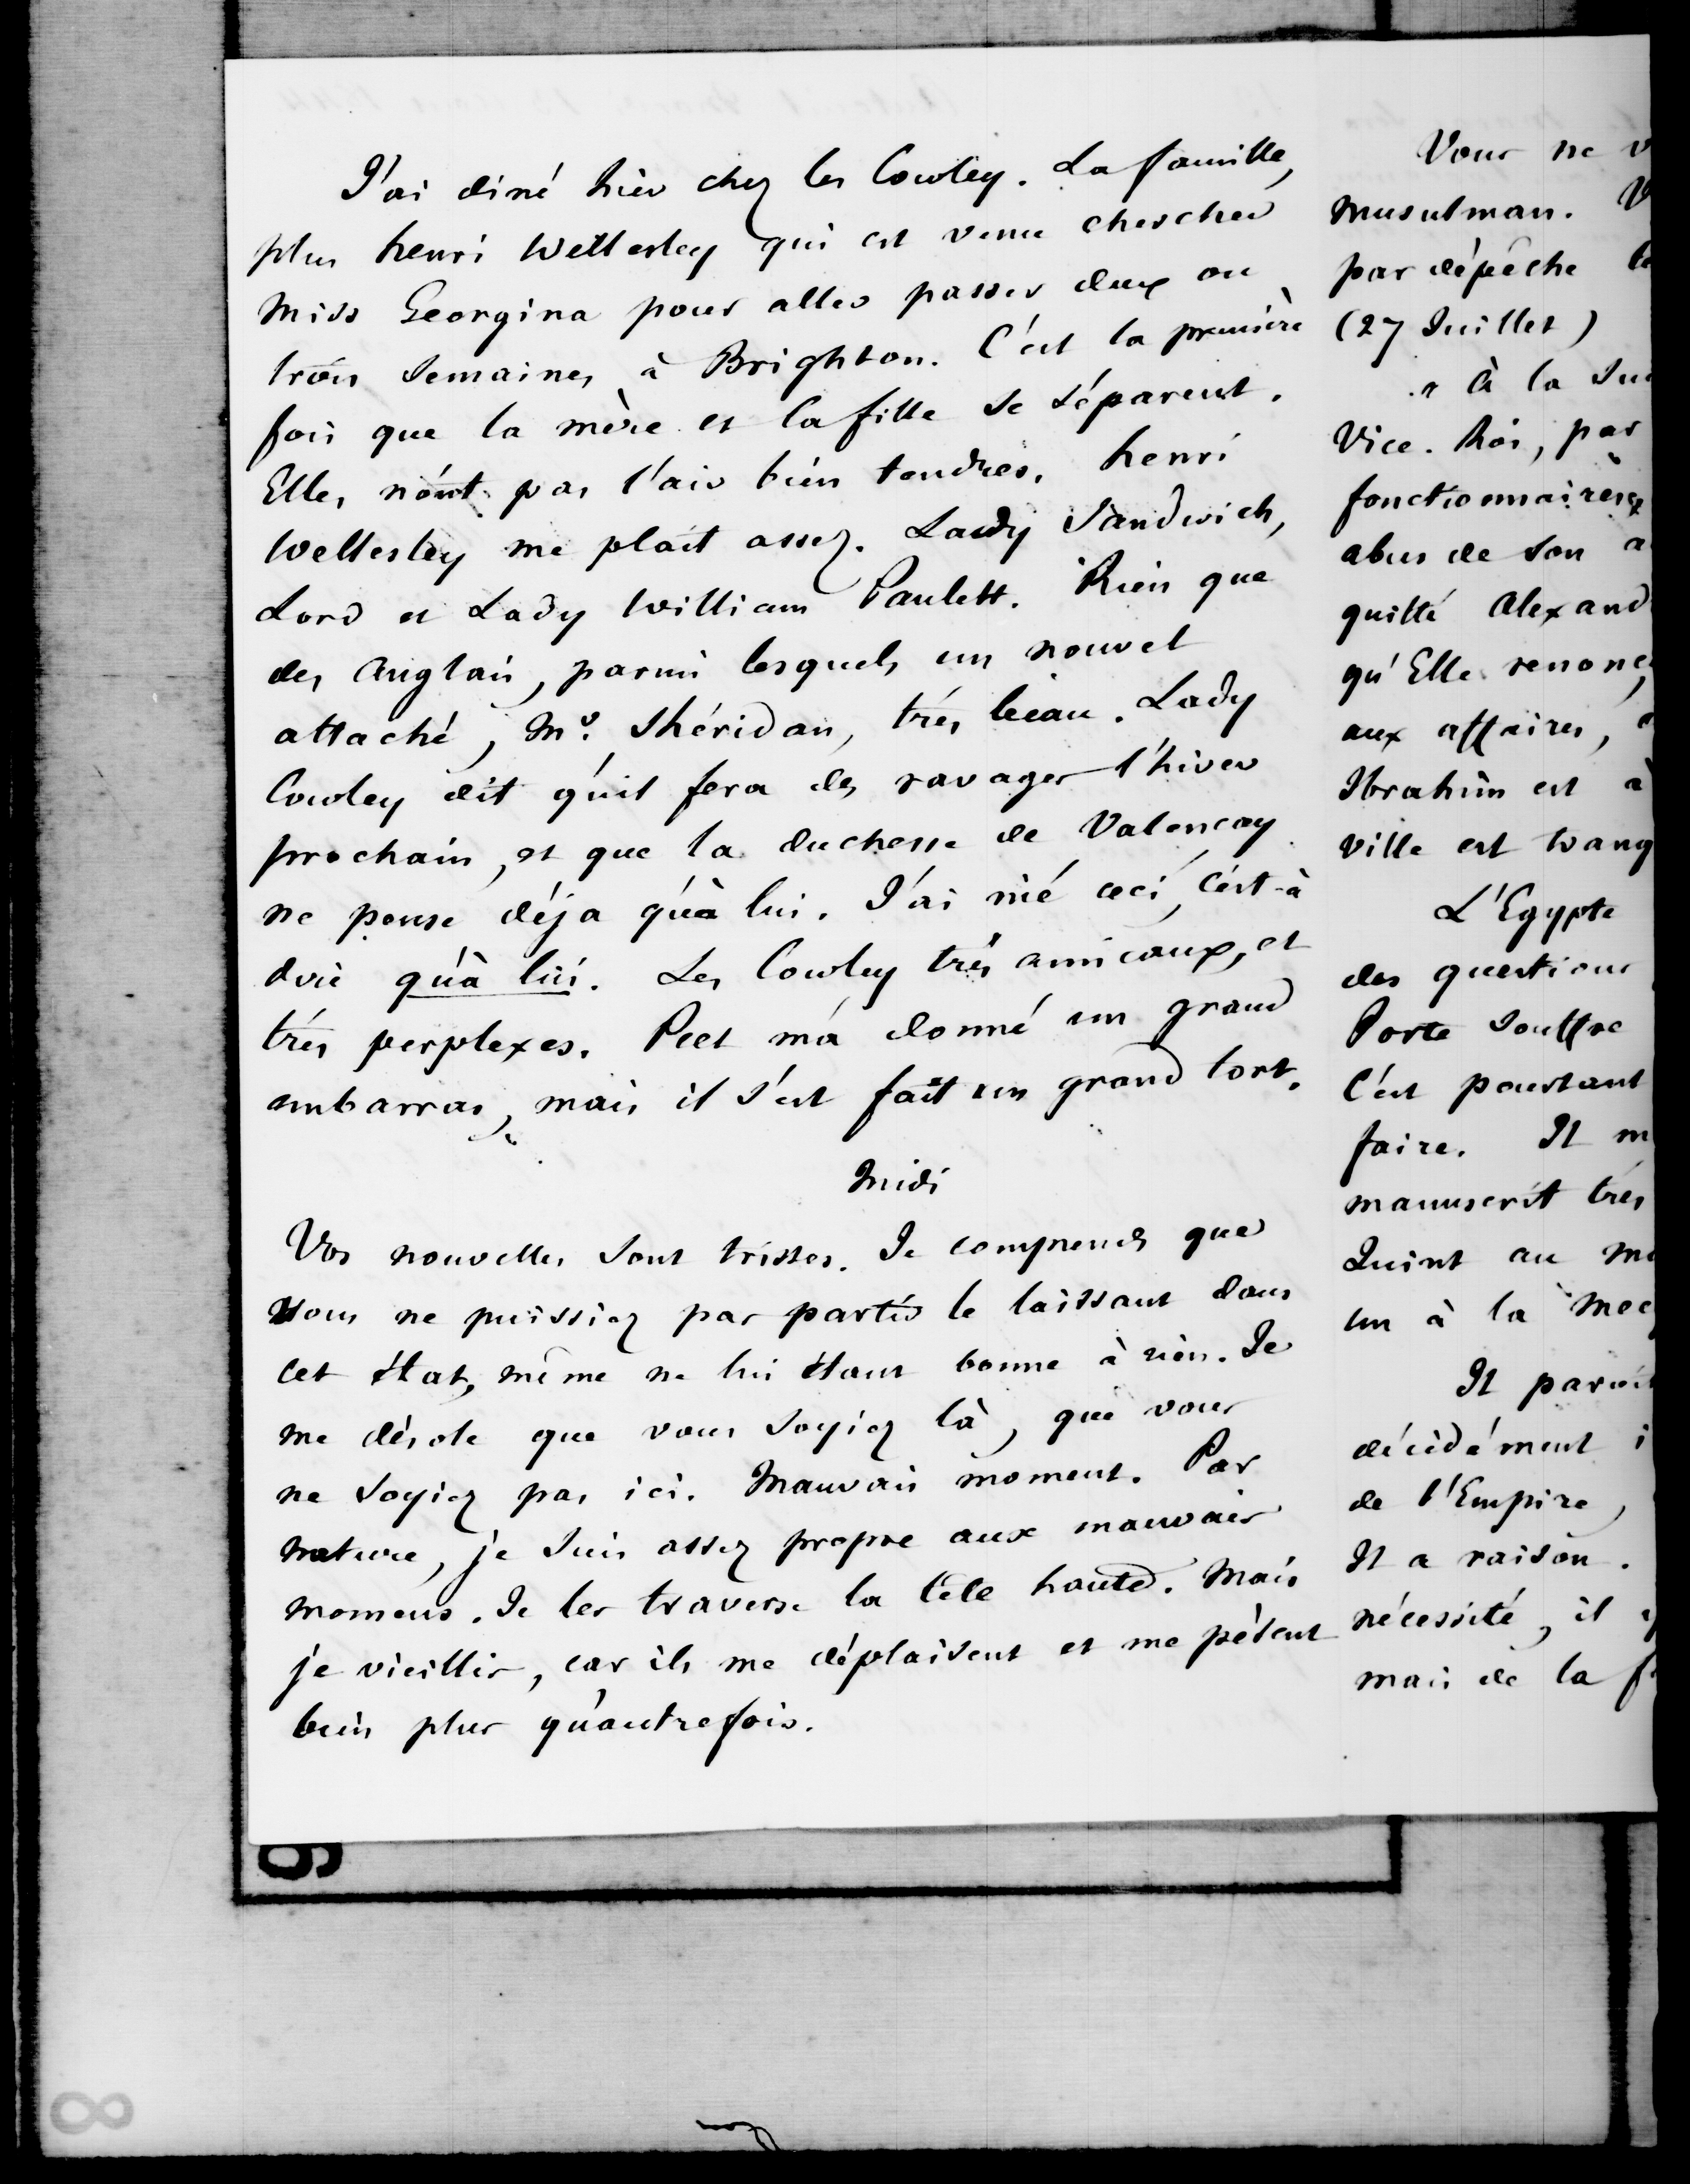 J'ai diné hier chez les Cowley. La famille,
plus henri Wellesley qui est venu chercher
Miss Georgina pour aller passer deux ou
trois semaines à Brighton. C'est la première
fois que la mère et la fille se séparent.
Elles n'ont pas l'air bien tendres. henri
Wellesley me plait assez. Lady Sandwich,
Lord et Lady William Paulett. Rien que
des Anglais, parmi lesquels un nouvel
attaché, Mr. Shéridan, très beau. Lady
Cowley dit qu'il fera des ravages l'hiver
prochain, et que la duchesse de Valençay
ne pense déja qu'à lui. J'ai nié ceci, c'est-à
dire qu'à lui. Les Cowley très amicaux, et
très perplexes. Peel m'a donné un grand
embarras, mais il s'est fait un grand tort.
Midi
Vos nouvelles sont tristes. Je comprends que
vous ne puissiez pas partir le laissant dans
cet état, même ne lui étant bonne à rien. Je
me désole que vous soyiez là, que vous
ne soyiez pas ici. Mauvais moment. Par
nature, je suis assez propre aux mauvais
momens. Je les traverse la tête haute. Mais
je vieillis, car ils me déplaisent et me pèsent
bien plus qu'autrefois.
Vous ne v
musulman. V
par dépêche
(27 Juillet)
" à la Sui
Vice-Roi, par
fonctionnaires
abus de son a
quitté Alexand
qu'Elle renonç
aux affaires,
Ibrahim est à
ville est tranq
L'Egypte
des questions
Porte souffre
C'est pourtant
faire. Il m
manuscrit très
Quint au Mo
un à la Mec
Il parait
décidément i
de l'Empire,
Il a raison.
nécessité, il y
mais de la f
9
8